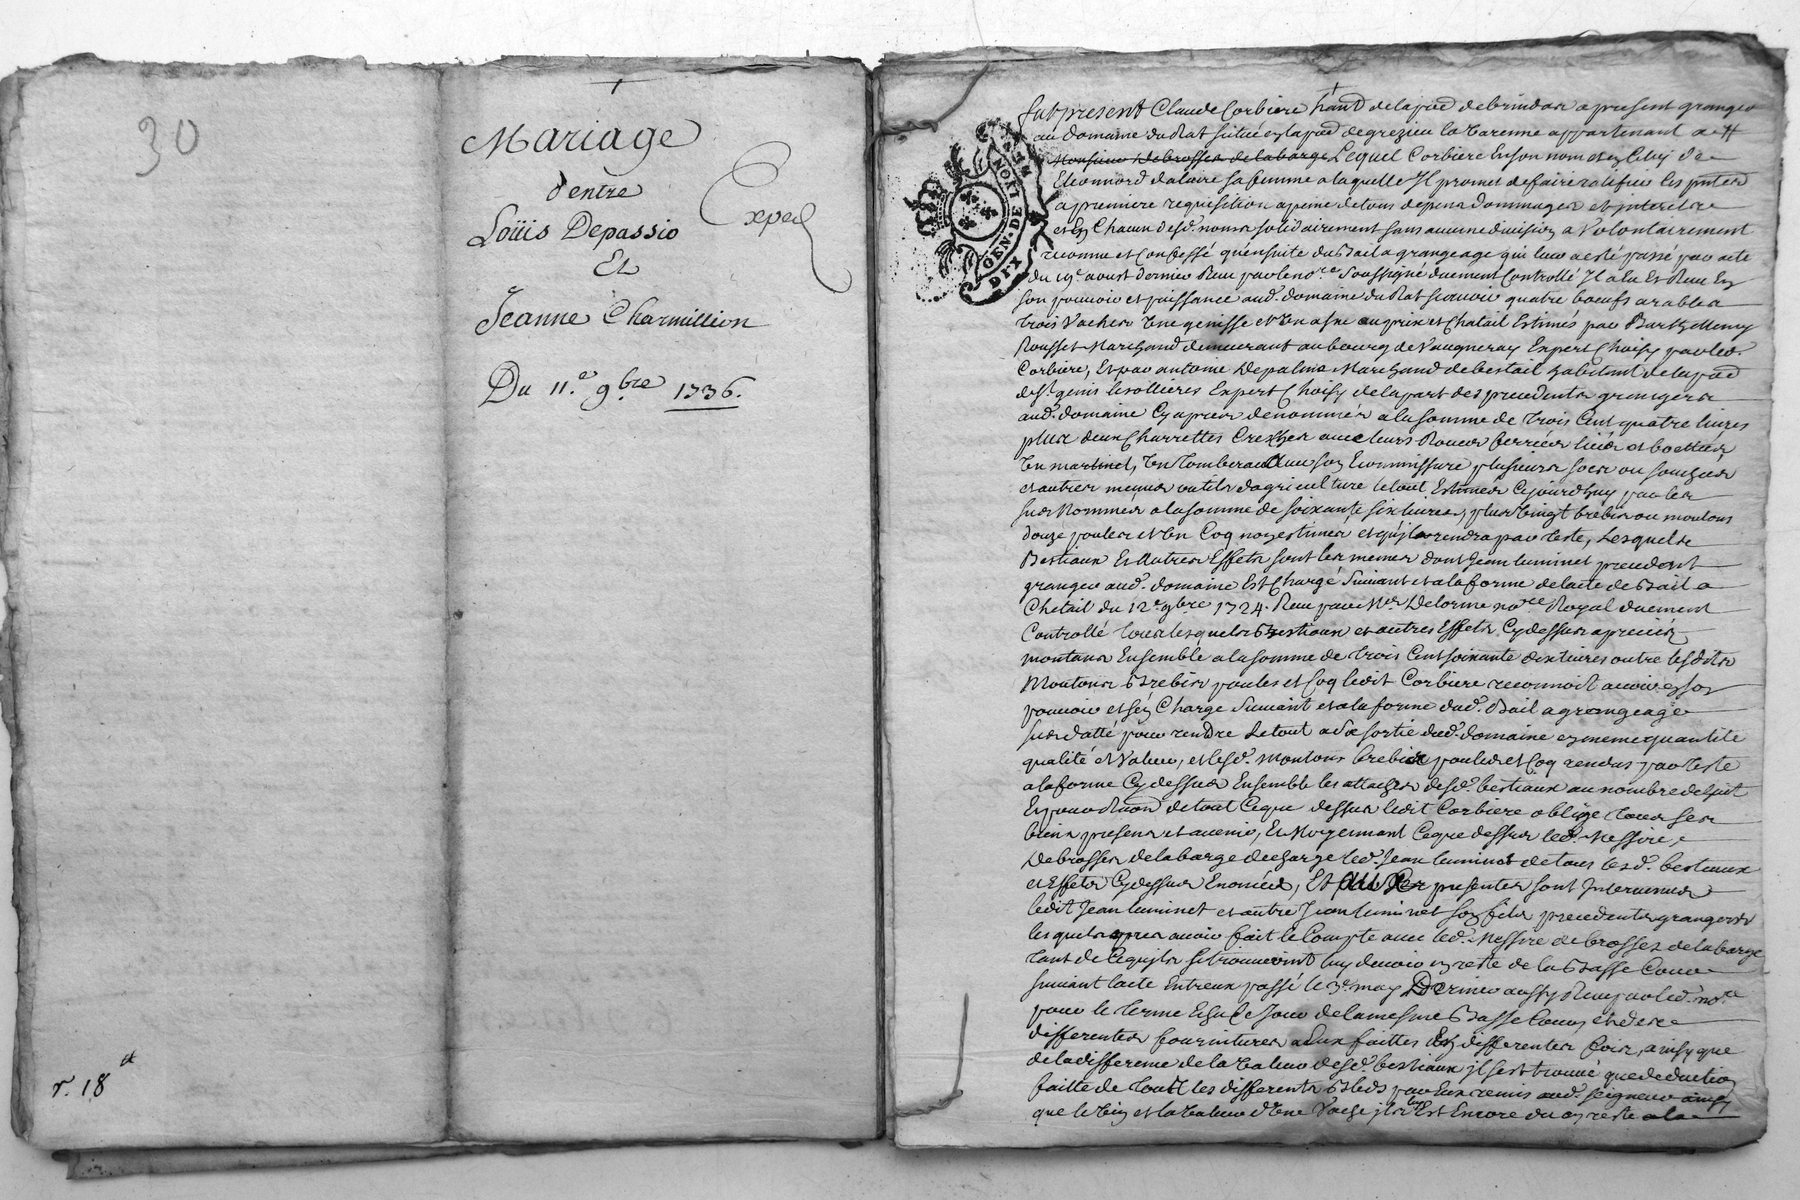 30
Mariage
d'entre
Loüis Depassio
Et
Jeanne Charmillion
Du 11.e 9bre 1736.
Exped
r. 18 d
GEN. DE LYON
DIX
fut present Claude Corbiere habitant de la de brindas a present granger
au domaine du Rat situé en la de grezieu la varenne appartenant a
Monsieur Debrosses de la barge Lequel Corbiere En son nom et en Celuy de
Eleonnord dalaire sa femme a laquelle Il promet de faire ratifier les
a premiere requisition a peine de tous depens dommages et interetz
et en Chacun desd. noms solidairement sans aucune division a Volontairement
reconnu et Confessé qu'ensuite du Bail a grangeage qui luy a esté passé par acte
du 19e aoust dernier Receu par le nore soussigné duement Controllé Il a Eu Et Receu En
son pouvoir et puissance aud. domaine du Rat scavoir quatre boeufs arables
trois Vaches Une genisse et Un asne au prix et Chatail Estimés par Barthellemy
Rousset Marchand demeurant au bourg de Vaugneray Expert Choisy par led.
Corbiere, Et par antoine Depalin Marchand de bestail habitant de la
de St. genis les ollieres Expert Choisy de la part des precedents grangers
aud. domaine Cy apres denommés a la somme de trois Cent quatre livres
plus deux Charrettes avec leurs Roues ferrées liées et boettées
Un martinet, Un tombereau plusieurs socs ou
et autres menus outils d'agriculture le tout Estimés Cejourd'huy par les
sus Nommés a la somme de soixante six livres, plus vingt brebis ou moutons
douze poules et Un Coq non estimés et qu'il rendra par teste, Lesquels
Bestiaux Et Autres Effets sont les memes dont Jean luminet precedent
granger aud. domaine Est Chargé suivant et a la forme de lacte de Bail a
Chetail du 12e 9bre 1724. Receu par Me Delorme nore Royal duement
Controllé tous lesquels Bestiaux et autres Effets Cy dessus appreciés
montans Ensemble a la somme de trois Cent soixante dix livres outre lesdits
Moutons Brebis poules et Coq ledit Corbiere reconnoit avoir en son
pouvoir et s'en Charge suivant et a la forme dud. Bail a grangeage
sus datté pour rendre le tout a sa sortie dud. domaine en meme quantité
qualité et Valeur, et lesd. moutons brebis poules et Coq rendus par teste
a la forme Cy dessus Ensemble les attaches desd. bestiaux au nombre de huit
En de tout Ceque dessus ledit Corbiere oblige tous ses
biens presens et avenir, Et Moyennant Ceque dessus led. Messire
Debrosses de la barge decharge led. Jean luminet de tous lesd. bestiaux
et Effets Cy dessus Enoncés, Et aux presentes sont Intervenus
ledit Jean luminet et autre Jean luminet son fils precedents grangers
lesquels apres avoir fait le Compte avec led. Messire de brosses de la barge
tant de Cequ'ils se trouvoient luy devoir en reste de la Basse Cour
suivant lacte Entreux passé le 3e may Dernier aussy Receu par led. nore
pour le terme Echu Ce Jour de la mesme Basse Cour et des
differentes fournitures a Eux faittes En differentes fois, ainsy que
de la difference de la Valeur desd. bestiaux il s'est trouvé que deduction
faitte de tous les differents Bleds par Eux remis aud. seigneur ainsy
que le Vin et la Valeur d'Une Vache il luy Est Encore du en reste a la